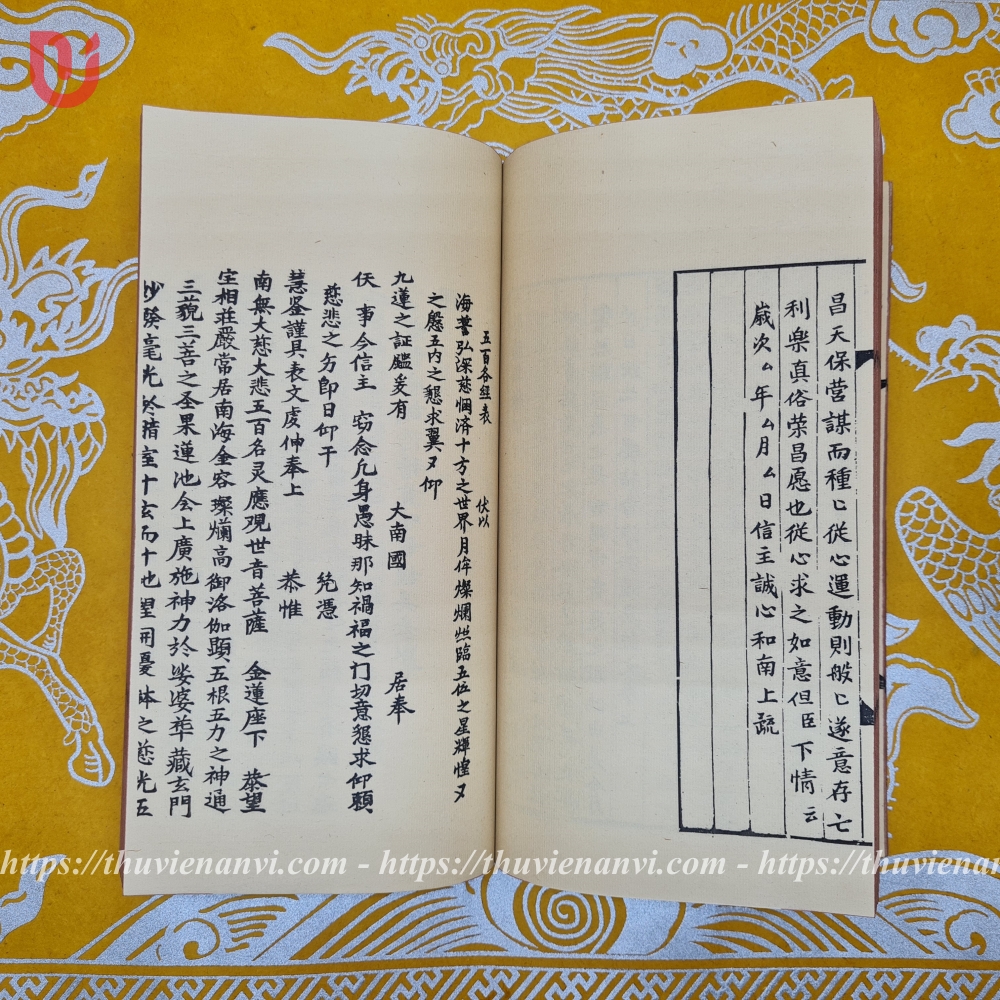 昌天保营謀而種〻從心運動則般〻遂意存亡
利樂真俗荣昌愿也從心求之如意但臣下情云
歲次ム年ム月ム日信主誠心和南上疏
五百各經表 伏以
海誓弘深慈憫済十方之世界月侔燦爛照臨五位之星輝惶又
之慇五内之懇求翼又仰
九蓮之証鑑爰有 大南國 居奉
仸 事今信主 窃念凢身愚昧那知禍福之门切意懇求仰頼
慈悲之 即日仰干 凭憑
慧鉴謹具表文虔伸奉上 恭惟
南無大慈大悲五百名灵應观世音菩薩 金蓮座下 恭望
宝相莊嚴常居南海金容燦爛高御洛伽顕五根五力之神通
三藐三菩之圣果蓮池会上廣施神力於娑婆華藏玄門
毫光於 室十玄而十也 之慈光五
https://thuvienanvi.com - https://thuvienanvi.com - https://thuviena